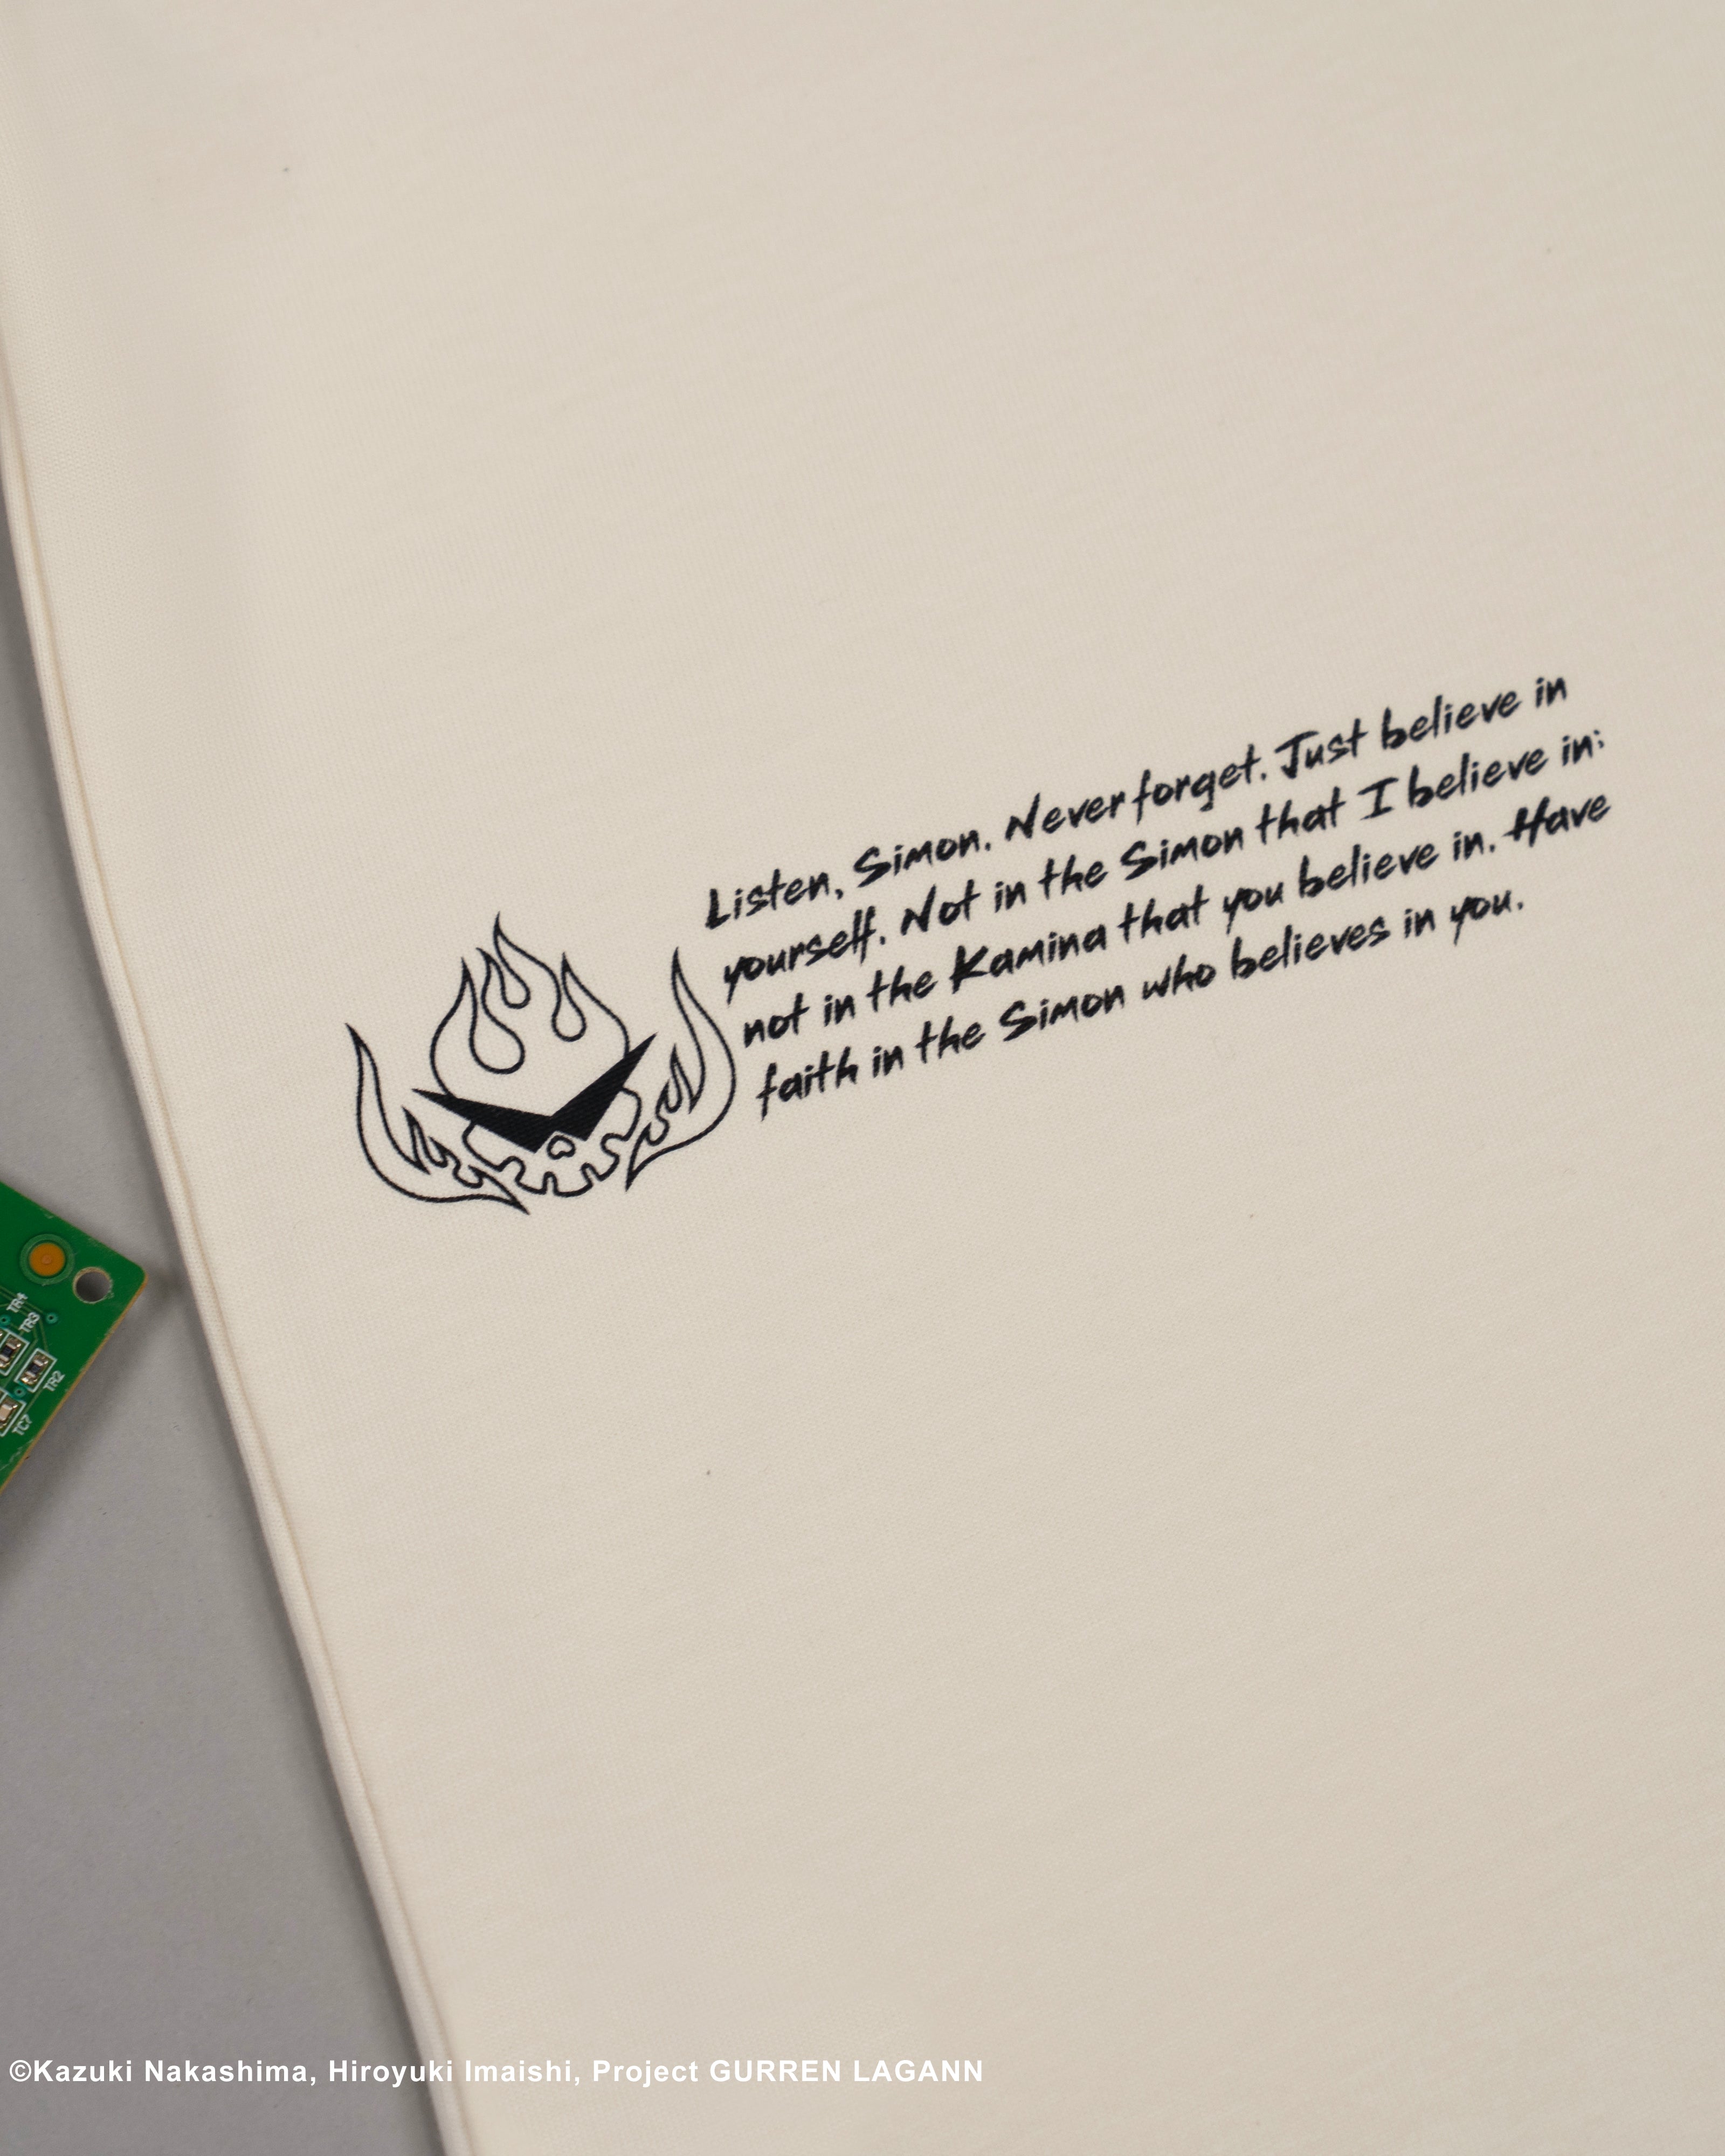 Listen, Simon. Never forget. Just believe in
yourself. Not in the Simon that I believe in;
not in the Kamina that you believe in. Have
faith in the Simon who believes in you.
TR4
TR3
TR2
TC7
©Kazuki Nakashima, Hiroyuki Imaishi, Project GURREN LAGANN